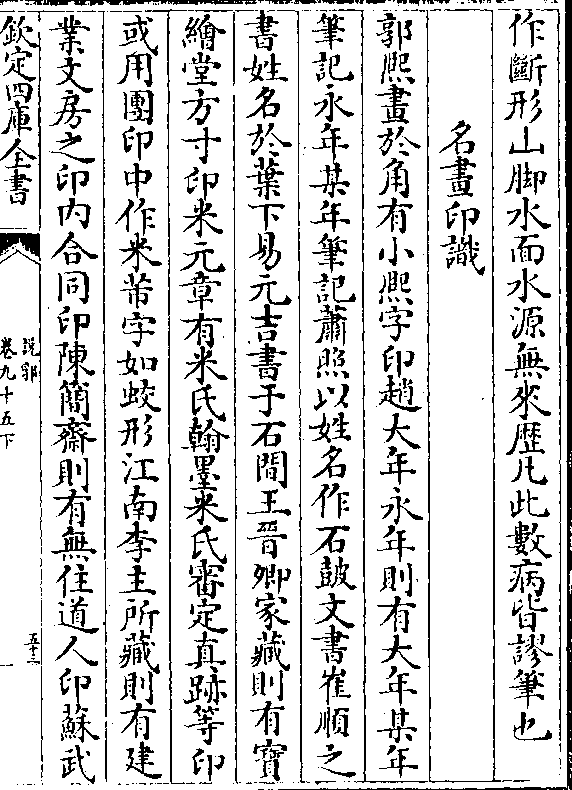 作斷形山脚水面水源無來歴凡此數病皆謬筆也
名畫印識
郭熈畫於角有小熈字印趙大年永年則有大年某年
筆記永年某年筆記蕭照以姓名作石鼓文書崔順之
書姓名於葉下易元吉書于石間王晉卿家藏則有寳
繪堂方寸印米元章有米氏翰墨米氏審定真跡等印
或用團印中作米芾字如蛟形江南李主所藏則有建
業文房之印内合同印陳簡齋則有無住道人印蘇武
欽定四庫全書
説郛
卷九十五下
五十三